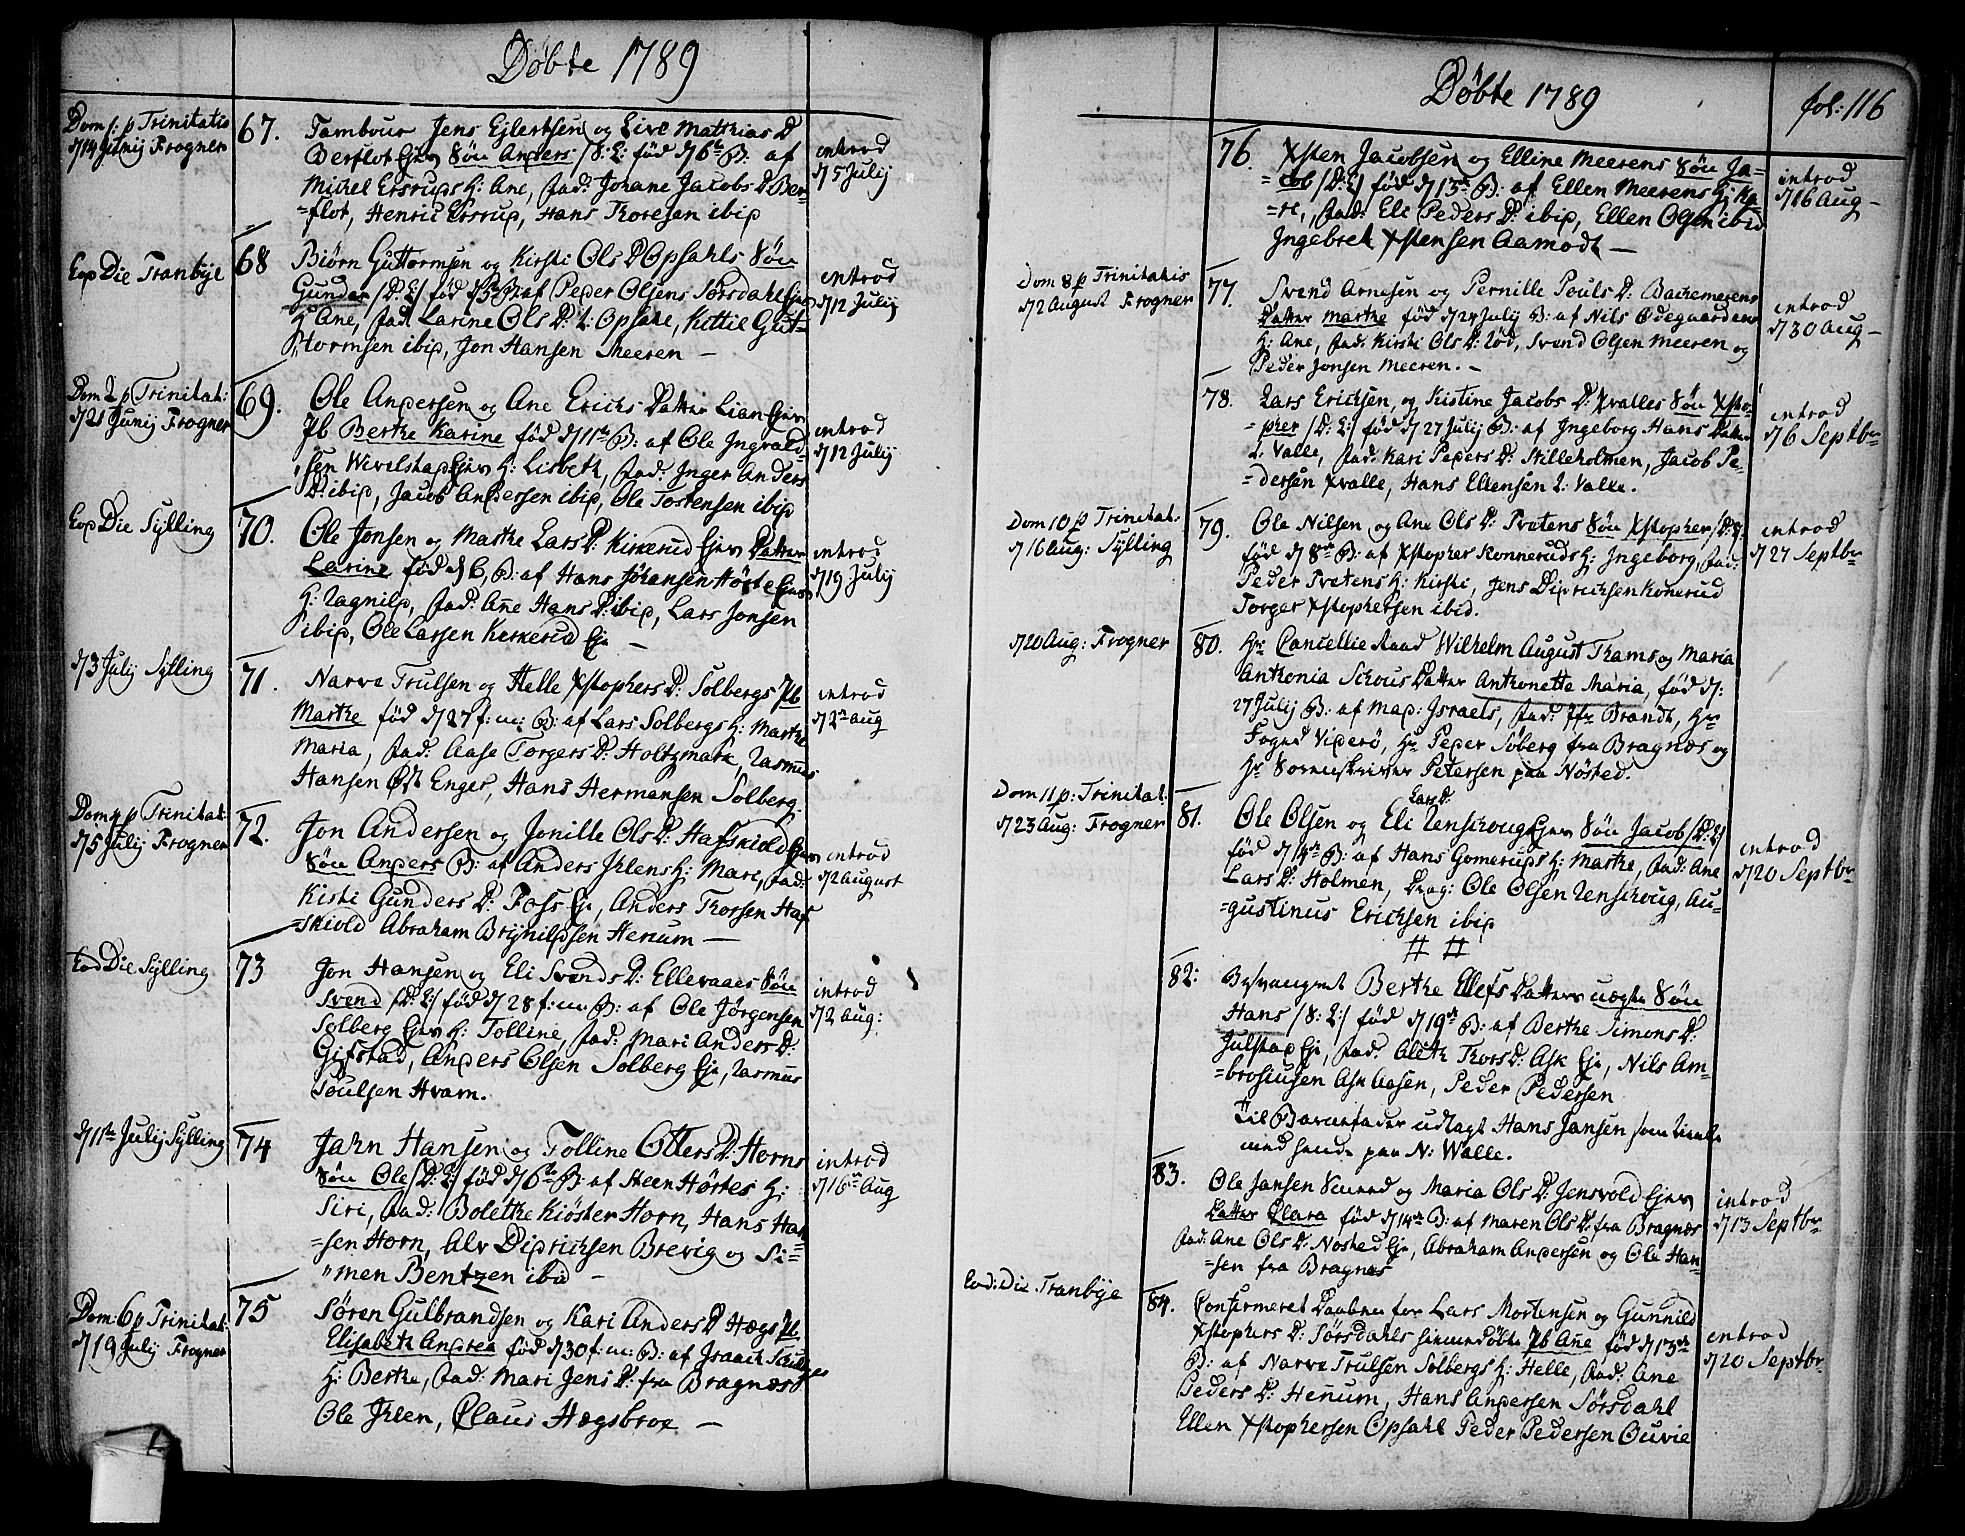 Døbte 1789
Dom 1: p Trinitatis
d/14 Junij Frogner
67.
Tambour Jens Ejlertsen og Live Matthias D
Berflot Ejer Søn Anders /S: L: fød d/6te B: af
Michel Ersrups H: Ane, fad: Johane Jacobs D Ber-
=flot, Henric Ersrup, Hans Thoresen ibid
introd
d/5 Julij
Eod Die Tranbye
68
Biørn Guttormsen og Kirsti Ols D Opsahls Søn
Gunder /D: L/ fød d/5te B: af Peder Olsens Sørsdahl Ejer
H: Ane, fad: Larine Ols D: L: Opsahl, Kittil Gut-
tormsen ibid, Jon Hansen Meeren —
introd
d/12 Julij
Dom 2 p Trinitat:
d/21 Junij Frogner
69.
Ole Andersen og Ane Erichs Datter Lian Ejer
Pb Berthe Karine fød d/11te B: af Ole Ingvald-
sen Wivelstad Ejer H: Lisbeth, fad: Inger Anders
D: ibid, Jacob Andersen ibid, Ole Tostensen ibid
introd
d/12 Julij
Eod Die Sylling
70.
Ole Jonsen og Marthe Lars D: Kirkerud Ejer Datter
Larine fød d/6, B: af Hans Johansen Hørte Ejer
H: Ragnild, fad: Ane Hans D: ibid, Lars Jonsen
ibid, Ole Larsen Kerkerud Eje —
introd
d/19 Julij
d/3 Julij Sylling
71.
Narve Trulsen og Helle Xstophers D: Solbergs Pb
Marthe fød d/27 f: m: B: af Lars Solbergs H: Marthe
Maria, fad: Aase Torgers D: Holtzmark, Rasmus
Hansen Øst Enger, Hans Hermansen Solberg.
introd
d/2n aug
Dom 4 p Trinitat:
d/5 Julij Frogner
72.
Jon Andersen og Jonille Ols D: Hafskiold Ejer
Søn Anders B: af Anders Ihlens H: Mari, fad:
Kisti Gunders D: Foss Eje, Anders Thorsen Haf
=skiold Abraham Brynildsen Henum —
introd
d/2 August
Eod Die Sylling
73
Jon Hansen og Eli Svends D: Ellevaaes Søn
Svend /D: L:/ fød d/28 f: m: B: af Ole Jørgensen
Solberg Ejer H: Tolline, fad: Mari Anders D:
Gifstad, Anders Olsen Solberg Eje, Rasmus
Poulsen Hvam.
introd
d/2 Aug:
d/11te Julij Sylling
74
Jahn Hansen og Tolline Otters D: Horns
Søn Ole /D: L/ fød d/6te B: af Steen Hørtes H:
Siri, fad: Bolethe Kiøster Horn, Hans Han
=sen Horn, Alv Didrichsen Brevig og Si=
"men Bentzen ibid —
introd
d/16n Aug
Dom: 6 p Trinitat:
d/19 Julij Frogner
75
Søren Gulbrandsen og Kari Anders D Hægs Pb
Elisabeth Andrea fød d/30 f: m: B: af Isaach
H: Berthe, fad: Mari Jens D: fra Bragnæs
Ole Ihlen, Claus Hægsbroe —
Døbte 1789
fol: 116
76
Xsten Jacobsen og Elline Meerens Søn Ja=
=cob /D: L/ fød d/13de B: af Ellen Meerens H:
=re, fad: Eli Peders D: ibid, Ellen Olsen ibid
Ingebret Xstensen Aamodt —
introd
d/16 Aug —
Dom 8 p Trinitatis
d/2 August Frogner
77.
Svend Arnesen og Pernille Pouls D: Bachemerens
Datter Marthe fød d/24 Julij B: af Nils Ødegaardens
H: Ane, fad: Kirsti Ols D: Lød, Svend Olsen Meeren og
Peder Jonsen Meeren. —
introd
d/30 Aug —
78.
Lars Erichsen, og Kistine Jacobs D: Xvalles Søn Xsto-
=pher /D: L:/ fød d/27 Julij B: af Ingeborg Hans Datter
L: Valle, fad: Kari Peders D: Stilleholmen, Jacob Pe-
=dersen Xvalle, Hans Ellensen L: Valle.
introd
d/6 Septbr
Dom 10 p Trinitat:
d/16 Aug: Sylling
79.
Ole Nilsen og Ane Ols D: Tvetens Søn Xstopher /D: L
fød d/8de B: af Xstopher Konneruds H: Ingeborg, fad:
Peder Tvetens H: Kirsti, Jens Didricksen Konerud
Torger Xstophersen ibid.
introd
d/27 Septbr
d/20 Aug: Frogner
80.
Hr Cancellie Raad Wilhelm August Thams og Maria
Anthonia Schous Datter Anthonette Maria, fød d:
27 Julij B: af Mad: Israels, fad: Jfr Brandt, Hr
Foged Viderø, Hr Peder Søberg fra Bragnæs og
Hr Sorenskriver Petersen paa Nøsted.
Dom 11 p: Trinitat:
d/23 Aug: Frogner
81.
Lars D:
Ole Olsen og Eli Renskoug Ejer Søn Jacob /D: L/
fød d/14de B: af Hans Gomeruds H: Marthe, fad: Ane
Lars D: Holmen, Drag: Ole Olsen Renskoug, Au-
=gustinus Ericksen ibid
introd
d/20 Septbr
# #
82:
Besvangret Berthe Ellefs Datters uægte Søn
Hans /S: L:/ fød d/19de B: af Berthe Simons D:
Julstad Eje, fad: Aleth Thors D: Ask Eje, Nils Am-
=brosiusen Ask Aasen, Peder Pedersen
til Barnefader udlagt Hans Jansen som tiente
med hende paa N: Walle.
83.
Ole Jansen Smeed og Maria Ols D: Jensvold Ejer
Datter Clara fød d/14de B: af Maren Ols D: fra Bragnæs
fad: Ane Ols D: Nøsted Eje, Abraham Andersen og Ole Han-
=sen fra Bragnæs
introd
d/13 Septbr
Eod: Die Tranbye
84.
Confirmeret Daaben for Lars Mortensen og Gunnild
Xstophers D: Sørsdahls hiemmedøbte Pb Ane fød d/13de
B: af Narve Trulsen Solbergs H: Helle, fad: Ane
Peders D: Henum, Hans Andersen Sørsdahl
Ellen Xstophersen Opsahl Peder Pedersen Ouvie
introd
d/20 Septbr